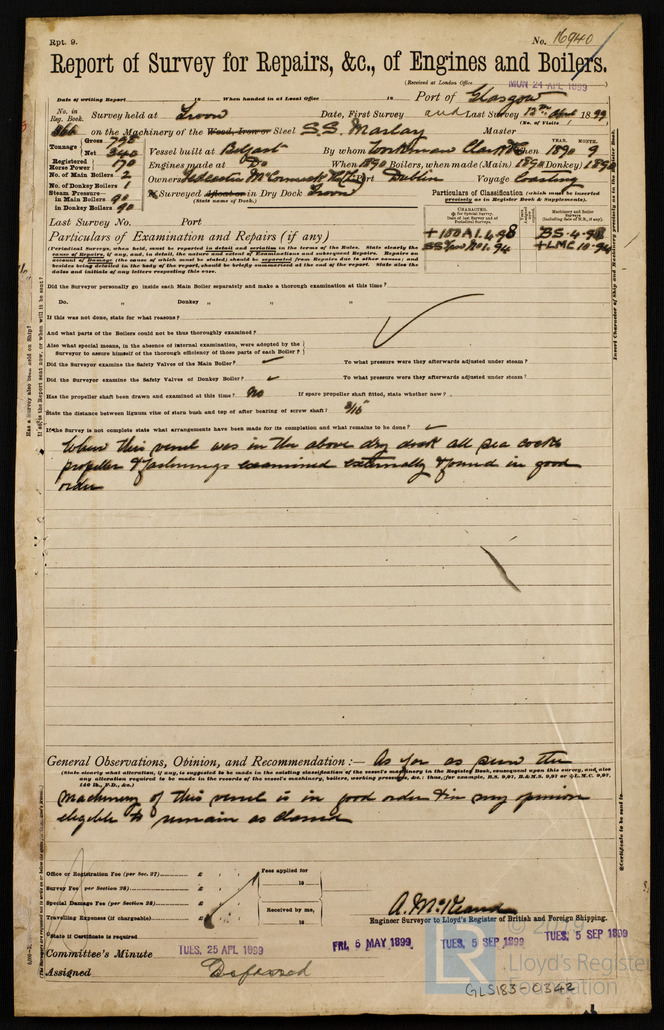 Rpt. 9.
No. 16940
Report of Survey for Repairs, &c., of Engines and Boilers.
(Received at London Office MON 24 APL 1899)
Date of writing Report 18 When handed in at Local Office 18 Port of Glasgow
No. in Reg. Book. Survey held at Troon Date, First Survey and Last Survey 12th April 1899
(No. of Visits 1)
866 on the Machinery of the Wood, Iron or Steel S.S. Marlay Master
Tonnage Gross 798 Net 340 Vessel built at Belfast By whom Workman Clark & Co When 1890 YEAR. MONTH. 9
Registered Horse Power 170 Engines made at Do When 1890 Boilers, when made (Main) 1890 (Donkey) 1890
No. of Main Boilers 2 Owners Port Dublin Voyage Coasting
No. of Donkey Boilers 1
Steam Pressure— in Main Boilers 90 in Donkey Boilers 90
If Surveyed Afloat or in Dry Dock Troon
(State name of Dock.)
Particulars of Classification (which must be inserted precisely as in Register Book & Supplements).
Last Survey No. Port
CHARACTER. & for Special Survey. Date of last Survey and of Periodical Surveys.
Machinery and Boiler Surveys (including date of N.B., if any).
+ 100 A1. 4.98 BS. 4.98
SS No 1. 94 + LMC 10.94
Particulars of Examination and Repairs (if any)
(Periodical Surveys, when held, must be reported in detail and seriatim in the terms of the Rules. State clearly the
cause of Repairs, if any, and, in detail, the nature and extent of Examinations and subsequent Repairs. Repairs on
account of Damage (the cause of which must be stated) should be separated from Repairs due to other causes; and
besides being detailed in the body of the report, should be briefly summarised at the end of the report. State also the
dates and initials of any letters respecting this case.
Did the Surveyor personally go inside each Main Boiler separately and make a thorough examination at this time?
Do. „ Donkey „ „ „
If this was not done, state for what reasons?
And what parts of the Boilers could not be thus thoroughly examined?
Also what special means, in the absence of internal examination, were adopted by the
Surveyor to assure himself of the thorough efficiency of those parts of each Boiler?
Did the Surveyor examine the Safety Valves of the Main Boiler? To what pressure were they afterwards adjusted under steam?
Did the Surveyor examine the Safety Valves of Donkey Boiler? To what pressure were they afterwards adjusted under steam?
Has the propeller shaft been drawn and examined at this time? No If spare propeller shaft fitted, state whether new?
State the distance between lignum vitæ of stern bush and top of after bearing of screw shaft? 3/16"
If the Survey is not complete state what arrangements have been made for its completion and what remains to be done?
When this vessel was in the above dry dock all sea cocks
propeller & fastenings examined externally & found in good
order
General Observations, Opinion, and Recommendation :— As far as seen the
(State clearly what alteration, if any, is suggested to be made in the existing classification of the vessel's machinery in the Register Book, consequent upon this survey, and also
any alteration required to be made in the records of the vessel's machinery, boilers, working pressure, &c.: thus, for example, B.S. 9,97, B.&M.S. 9,97 or L.M.C. 9,97,
140 lb., F.D., &c.)
machinery of this vessel is in good order & in my opinion
eligible to remain as classed
Office or Registration Fee (per Sec. 27) £
Survey Fee (per Section 28) £
Special Damage Fee (per Section 28) £
Travelling Expenses (if chargeable) £
Fees applied for
18
Received by me,
18
A. McKeand
Engineer Surveyor to Lloyd's Register of British and Foreign Shipping.
State if Certificate is required
Committee's Minute TUES. 25 APL 1899 FRI. 5 MAY 1899 TUES. 5 SEP 1899 TUES. 5 SEP 1899
Assigned Deferred
© 2019
LR Lloyd's Register Foundation
GLS183-0342